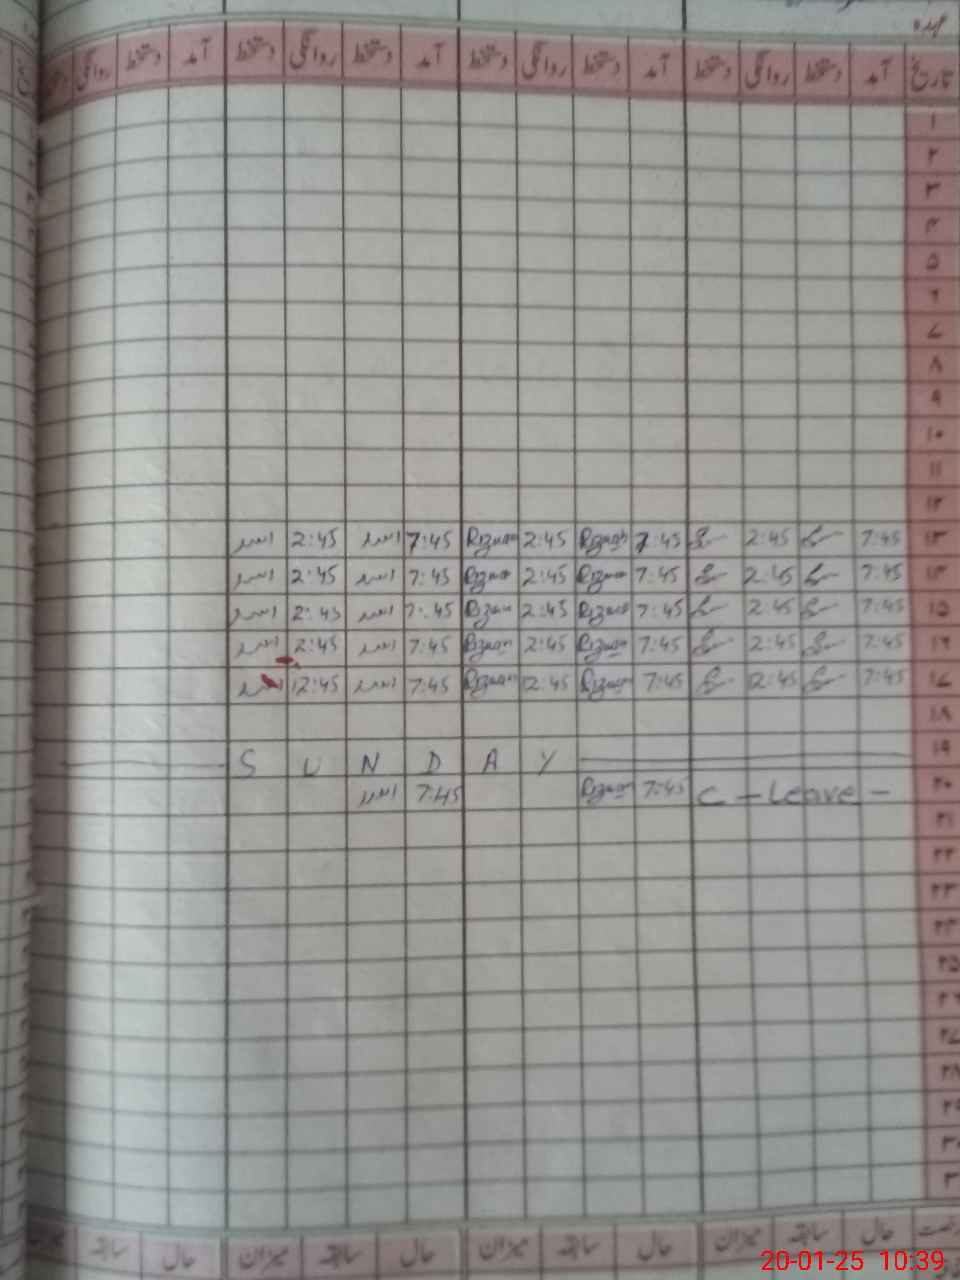 عہدہ
تاریخ آمد دستخط روانگی دستخط آمد دستخط روانگی دستخط آمد دستخط روانگی دستخط آمد دستخط روانگی
۱
۲
۳
۴
۵
۶
۷
۸
۹
۱۰
۱۱
۱۲
۱۳ 7:45 2:45 7:45 Rizwan 2:45 Rizwan 7:45 اسد 2:45 اسد
۱۴ 7:45 2:45 7:45 Rizwan 2:45 Rizwan 7:45 اسد 2:45 اسد
۱۵ 7:45 2:45 7:45 Rizwan 2:45 Rizwan 7:45 اسد 2:45 اسد
۱۶ 7:45 2:45 7:45 Rizwan 2:45 Rizwan 7:45 اسد 2:45 اسد
۱۷ 7:45 12:45 7:45 Rizwan 12:45 Rizwan 7:45 اسد 12:45 اسد
۱۸
۱۹ SUNDAY
۲۰ C - Leave - 7:45 Rizwan 7:45 اسد
۲۱
۲۲
۲۳
۲۴
۲۵
۲۶
۲۷
۲۸
۲۹
حال سابقہ میزان حال سابقہ میزان حال سابقہ میزان حال سابقہ
20-01-25 10:39